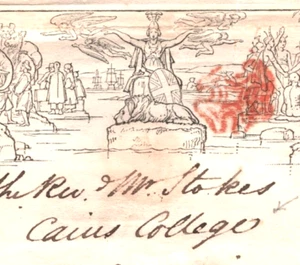 The Rev.d Mr. Stokes
Caius College